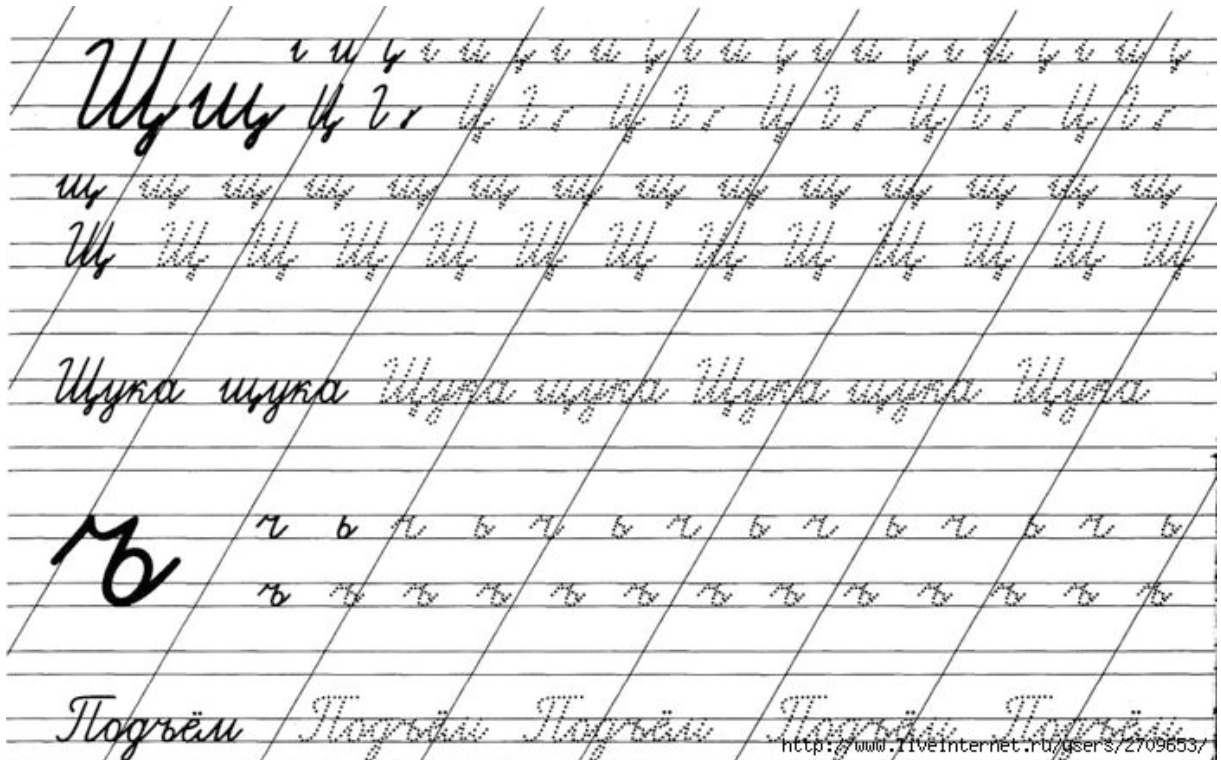 Щ щ
щ щ щ щ щ щ щ щ щ щ щ щ щ щ
Щ Щ Щ Щ Щ Щ Щ Щ Щ Щ Щ Щ Щ
Щука щука Щука щука Щука щука Щука
ъ
ъ ъ ъ ъ ъ ъ ъ ъ ъ ъ ъ ъ ъ
Подъём Подъём Подъём Подъём Подъём
http://www.liveinternet.ru/users/2709653/